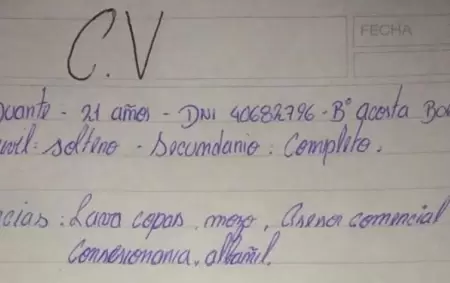 C.V
FECHA
vante - 21 años - DNI 40682796 - B° acosta
civil: soltero - Secundario: Completo.
cias: Lava copas, mozo, Asesor comercial
Consesionaria, albañil.